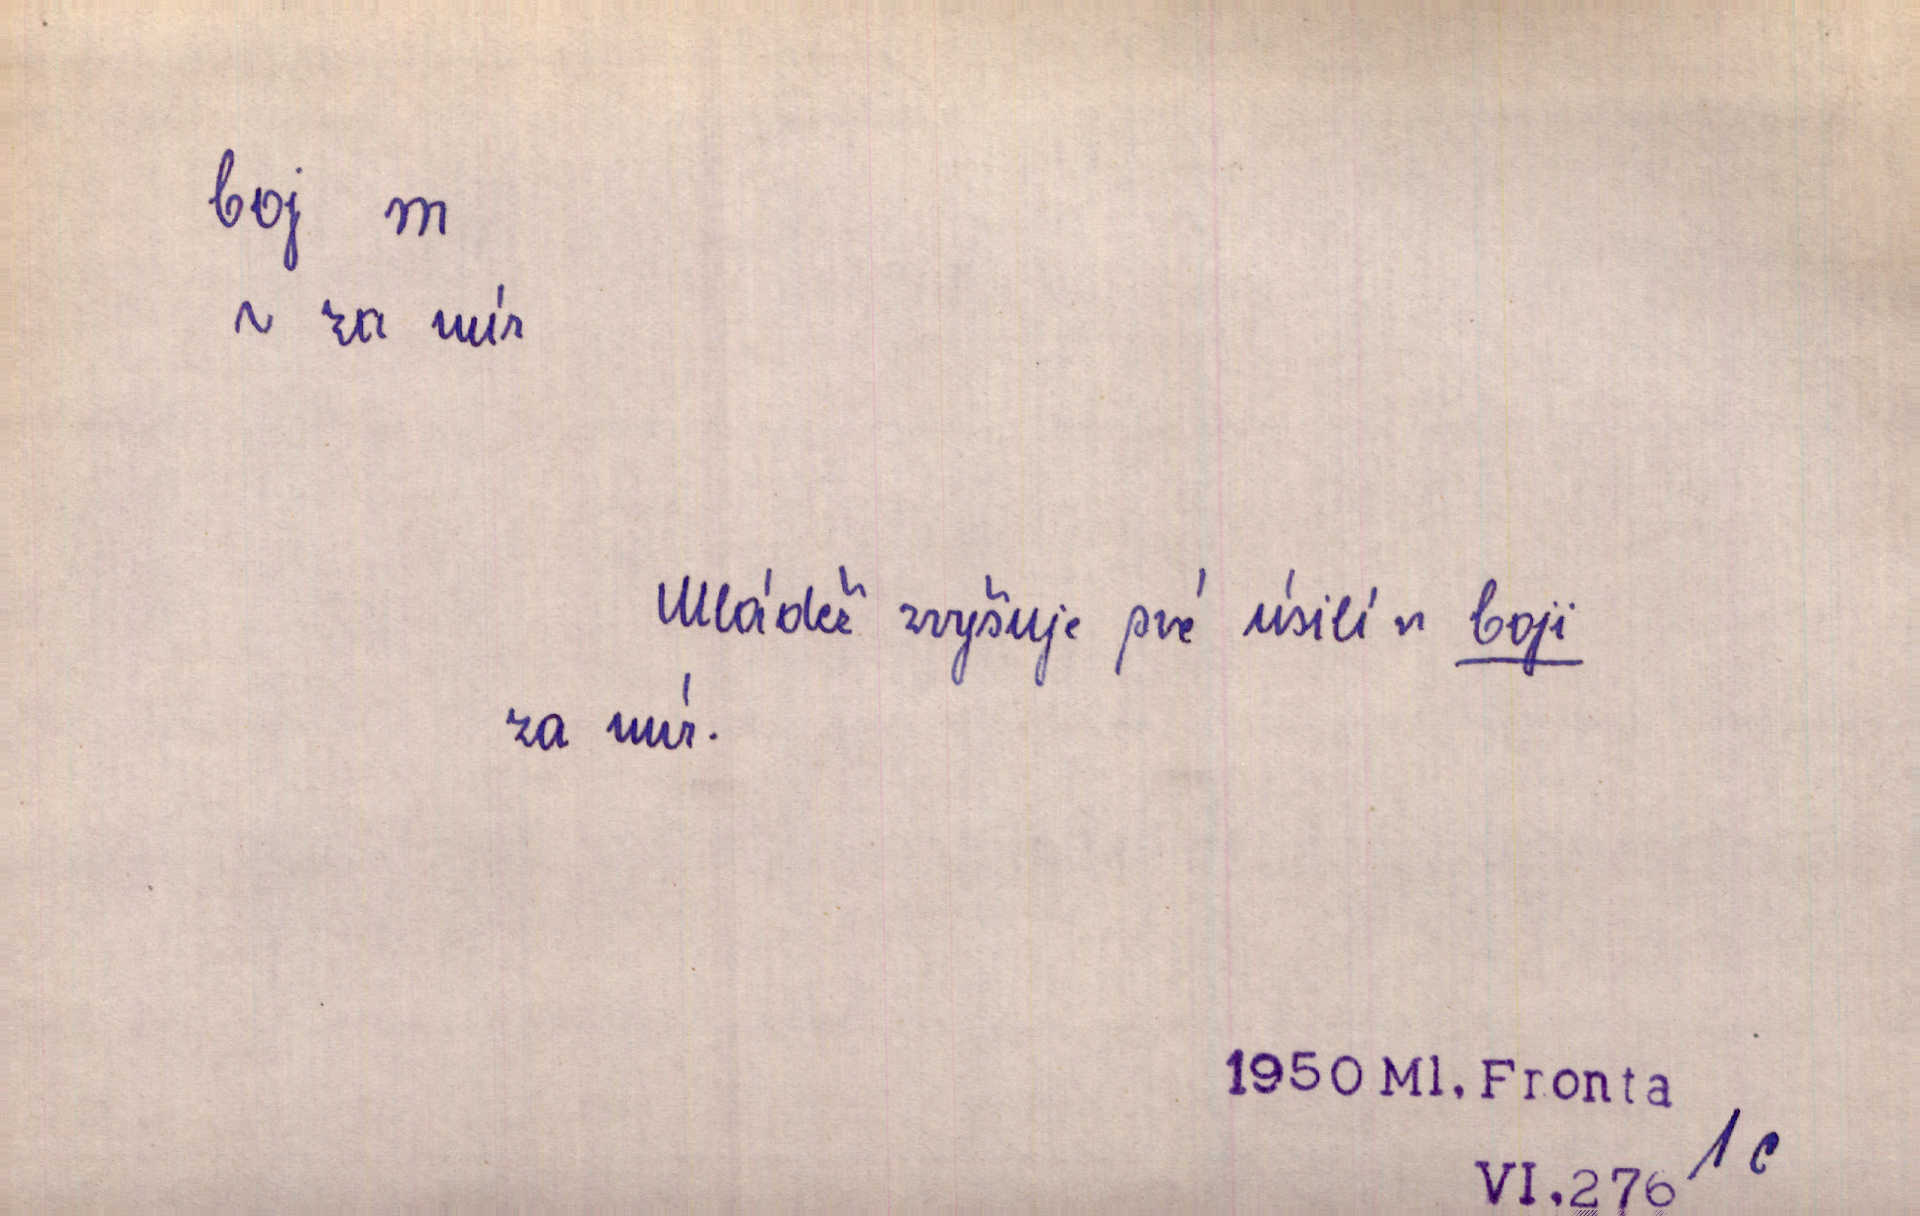 boj m
~ za mír
Mládež zvyšuje své úsilí v boji
za mír.
1950 Ml. Fronta
VI.276/1c